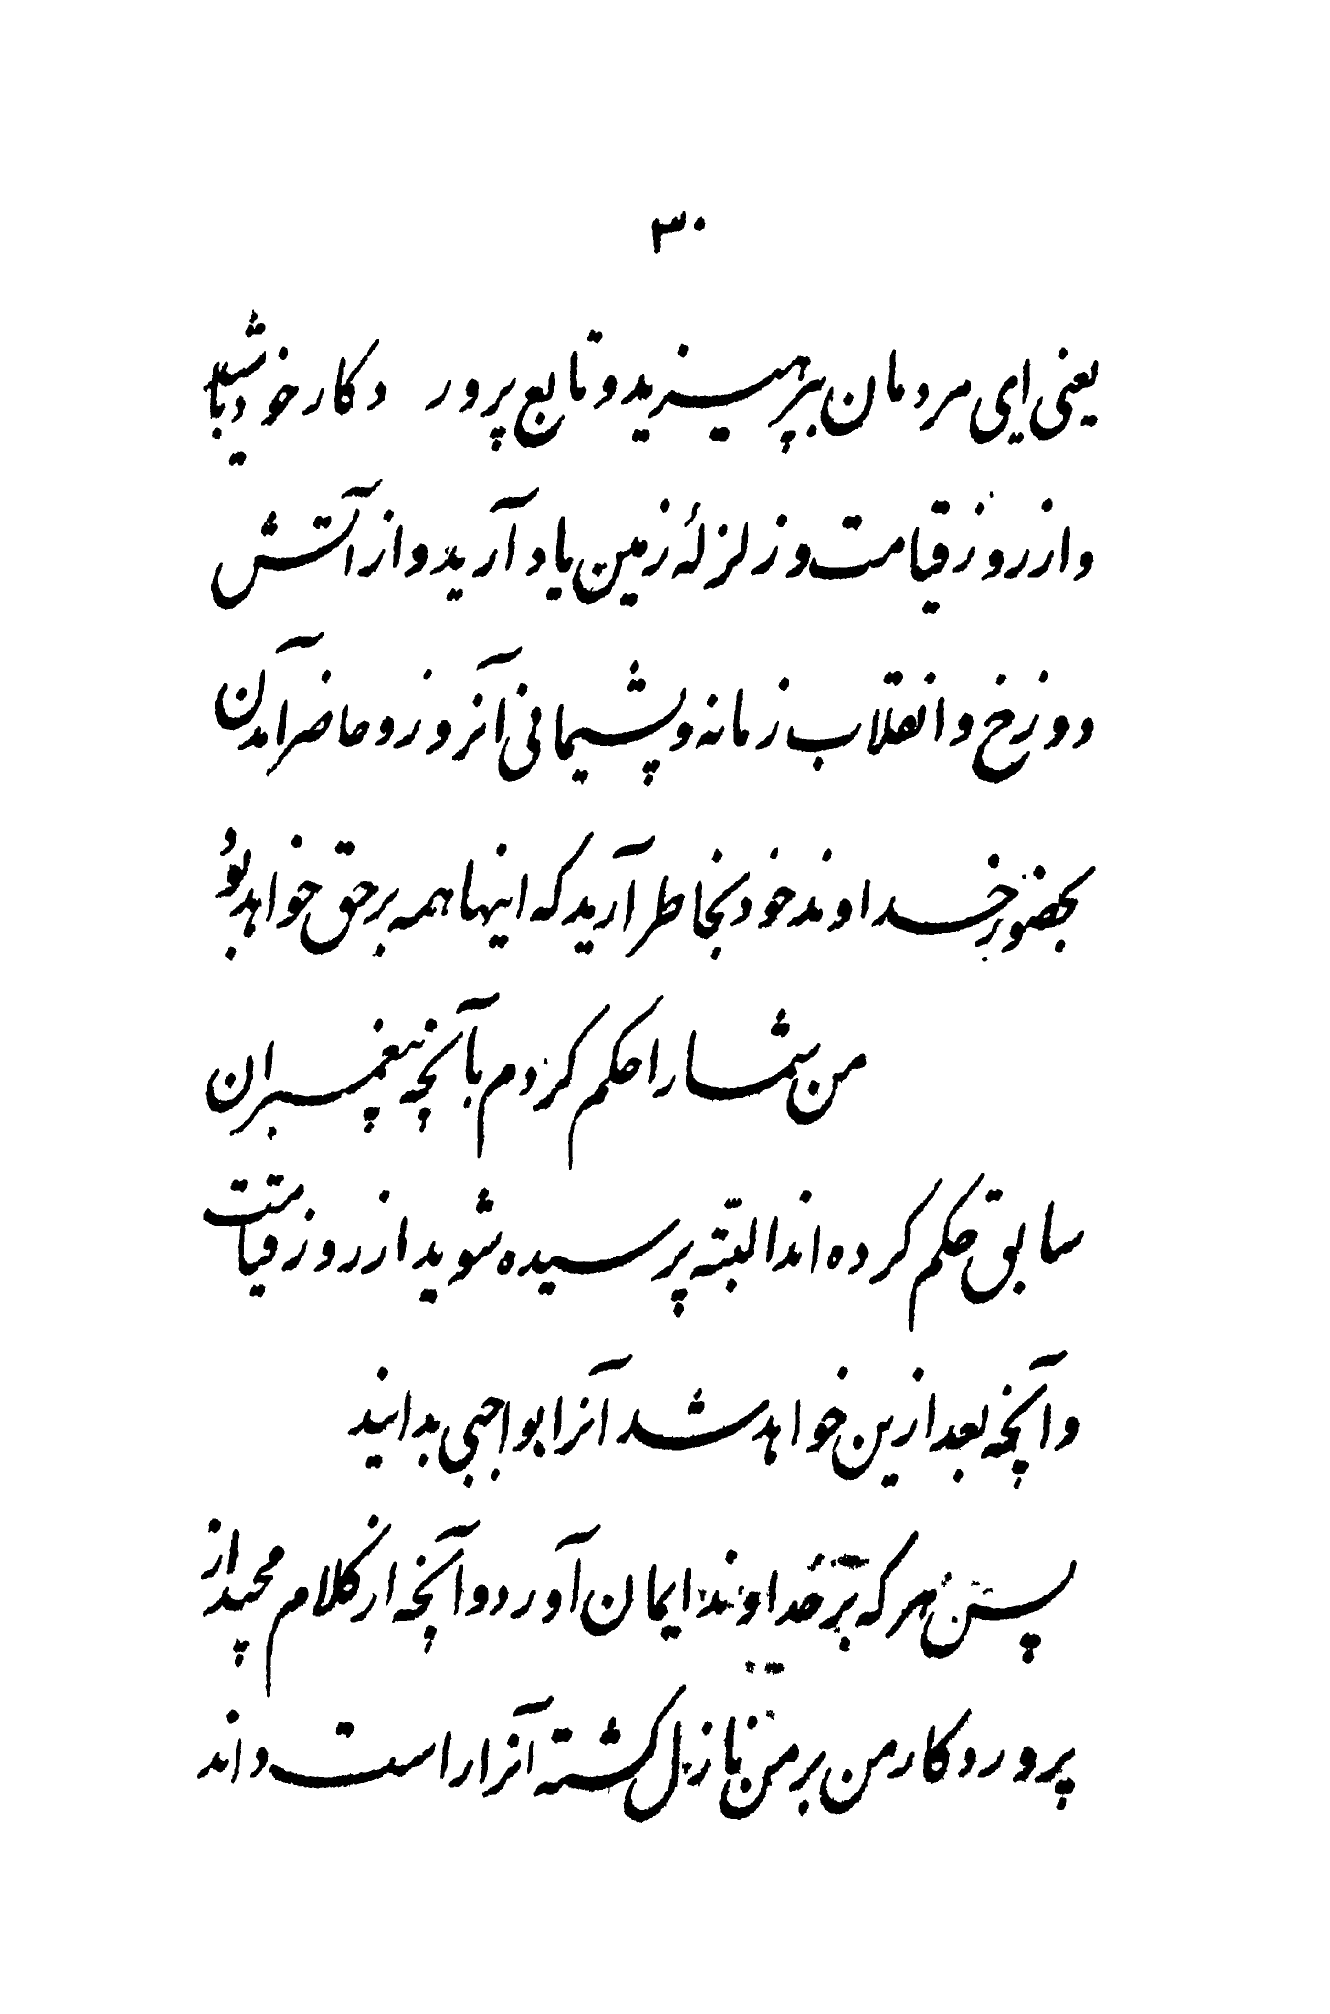 ۳۰
یعنی ای مردمان بپرهیزید و تابع پرور دکار خود باشید
و از روز قیامت و زلزلهٔ زمین یاد آرید و از آتش
دوزخ و انقلاب زمانه و پشیمانی آنروز و حاضر آمدن
بحضور خداوند خود بخاطر آرید که اینها همه بر حق خواهد بود
من شما را حکم کردم بآنچه پیغمبران
سابق حکم کرده اند البتّه پرسیده شوید از روز قیامت
و آنچه بعد ازین خواهد شد آنرا بواجبی بدانید
پس هر که بر خداوند ایمان آورد و آنچه از کلام مجید از
پروردکار من بر من نازل کشته آنرا راست داند